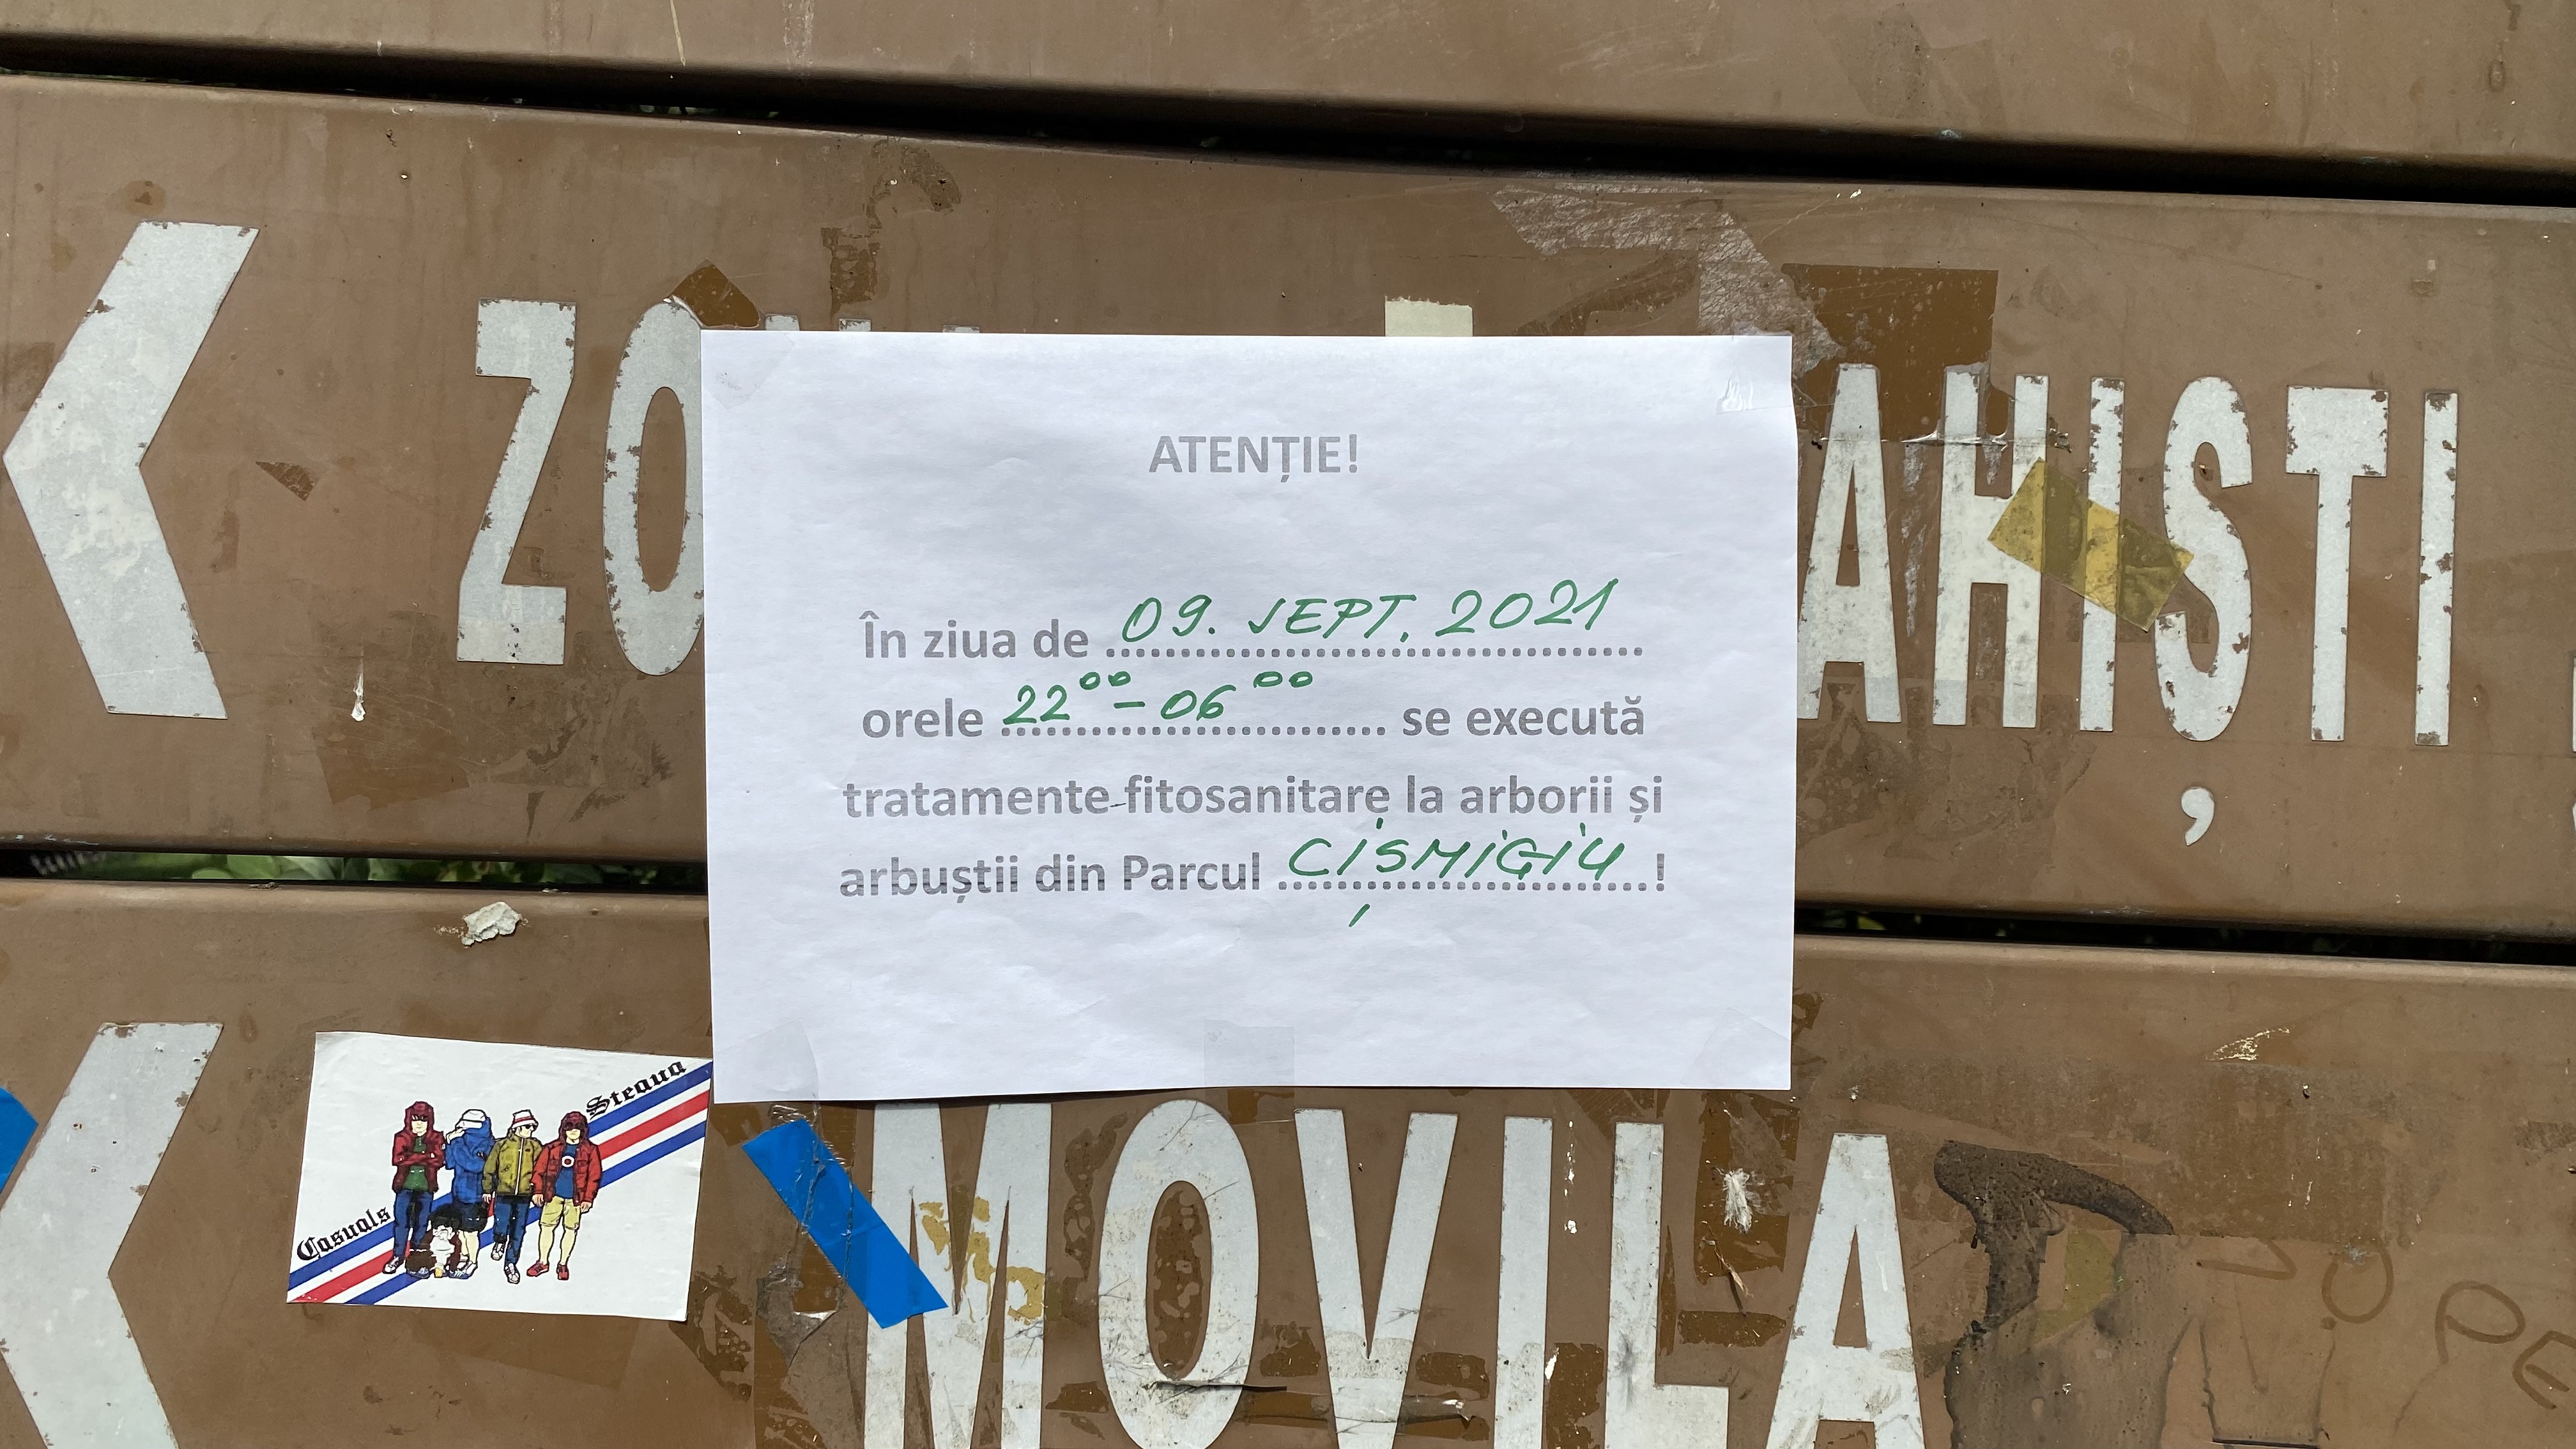 ZO
AHIȘTI
ATENȚIE!
În ziua de 09. SEPT. 2021
orele 22⁰⁰ - 06⁰⁰ se execută
tratamente fitosanitare la arborii și
arbuștii din Parcul CIȘMIGIU!
Steaua
Casuals
MOVILA